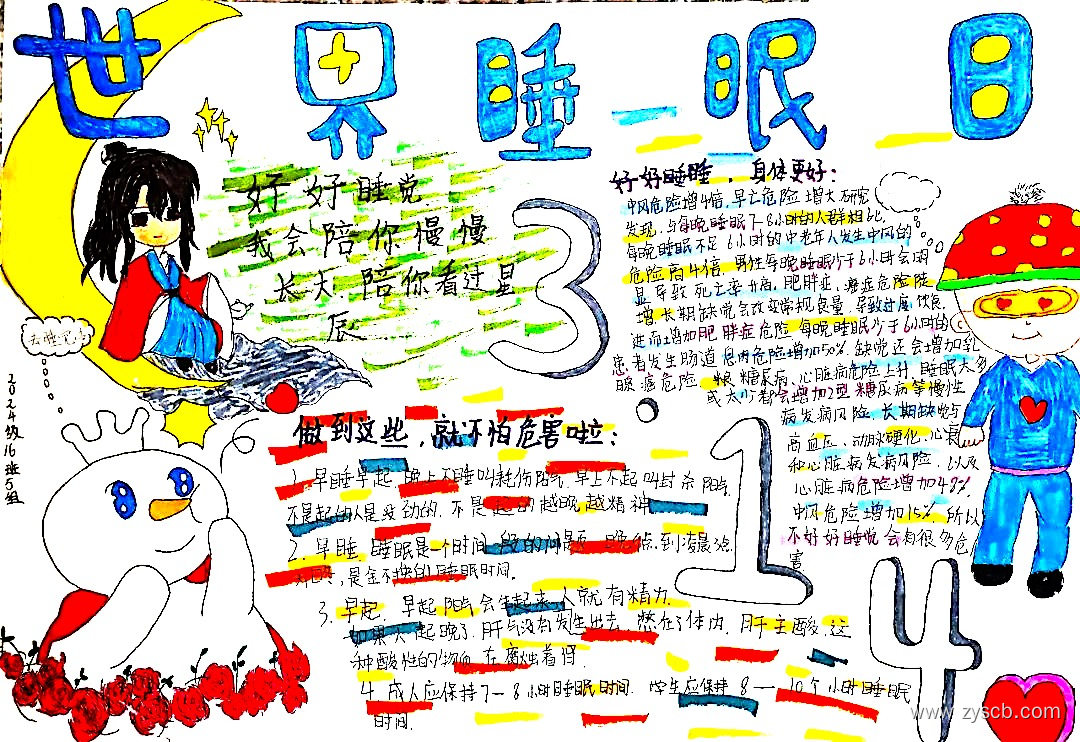 世界睡眠日
好好睡觉
我会陪你慢慢
长大.陪你看过星
辰
去睡觉吧
2024级16班5组
314
好好睡睡，身体更好：
中风危险增4倍.早亡危险增大.研究
发现.与每晚睡眠7-8小时的人群相比,
每晚睡眠不足6小时的中老年人发生中风的
危险高4倍.男性每晚睡眠少于6小时会明
显导致死亡率升高.肥胖症、癌症危险陡
增.长期缺觉会改变常规食量.导致过度饮食.
进而增加肥胖症危险.每晚睡眠少于6小时的
患者发生肠道息肉危险增加50%.缺觉还会增加乳
腺癌危险.糖尿病、心脏病危险上升.睡眠太多
或太少都会增加2型糖尿病等慢性
病发病风险.长期缺觉与
高血压、动脉硬化、心衰
和心脏病发病风险.以及
心脏病危险增加48%.
中风危险增加15%.所以
不好好睡觉会有很多危
害
做到这些，就不怕危害啦：
1.早睡早起.晚上不睡叫耗伤阳气.早上不起叫封杀阳气.
不是起的人是勤劲的.不是起的越晚越精神
2.早睡.睡眠是一个时间段的问题.晚点到凌晨3点.
是金不换的睡眠时间.
3.早起.早起阳气会生起来.人就有精力.
如果人起晚了.肝气没有发生出去.憋在了体内.肝主酸.这
种酸性的物质在腐蚀着肝.
4.成人应保持7—8小时睡眠时间.学生应保持8—10个小时睡眠
时间.
www.zyscb.com